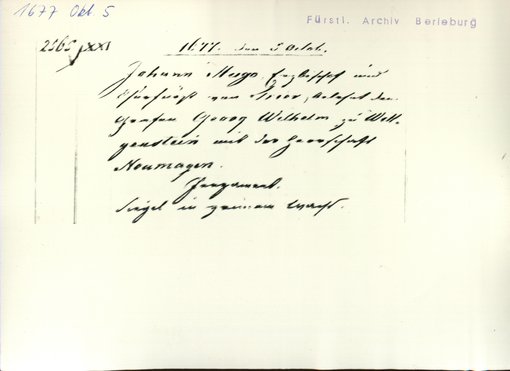 1677 Okt. 5
Fürstl. Archiv Berleburg
1677. den 5 Octob.
Johann Hugo, Erzbischof und
Churfürst von Trier, belehnt den
Grafen Georg Wilhelm zu Witt-
genstein mit der Herrschaft
Neumagen.
Pergament.
Siegel in grünem Wachs.